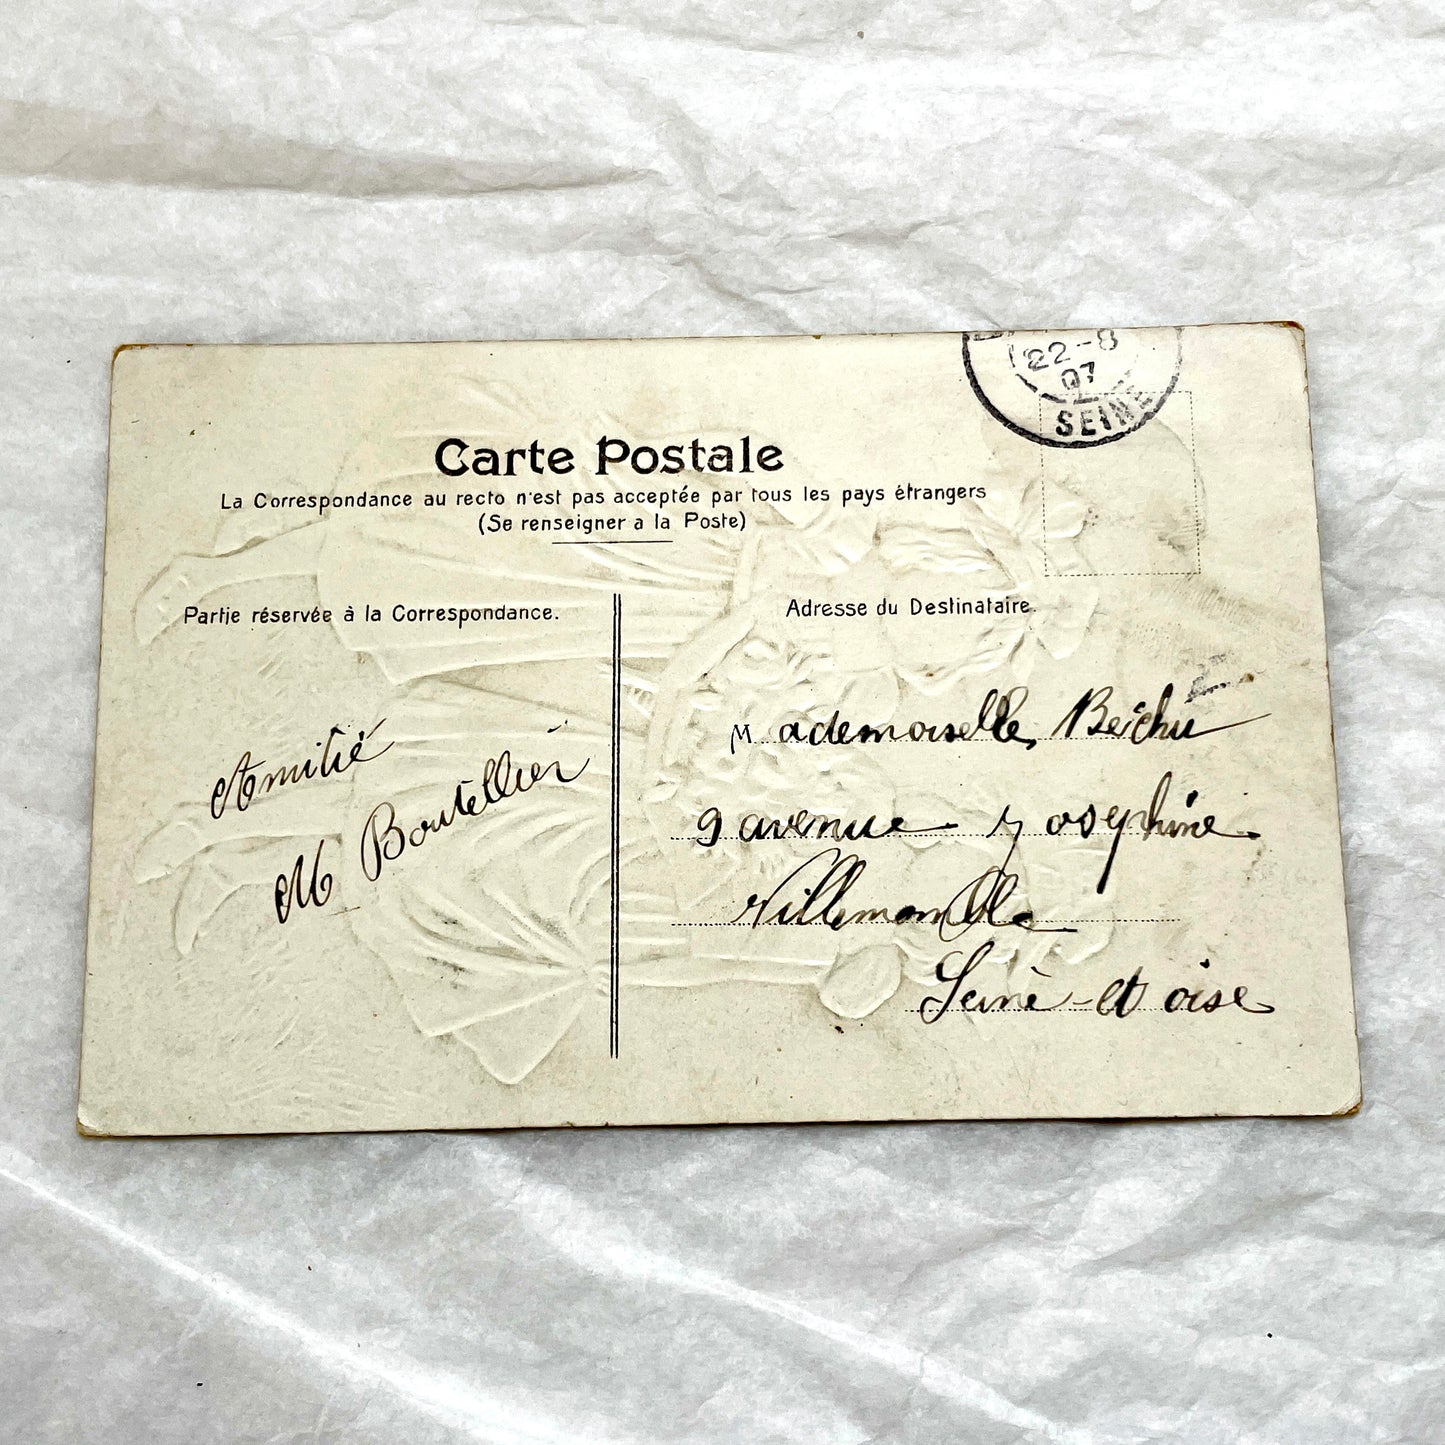 22-8
07
SEINE
Carte Postale
La Correspondance au recto n'est pas acceptée par tous les pays étrangers
(Se renseigner a la Poste)
Partie réservée à la Correspondance.
Amitié
M Boutellier
Adresse du Destinataire.
Mademoiselle
9 avenue Josephine
Villemomble
Seine-et oise